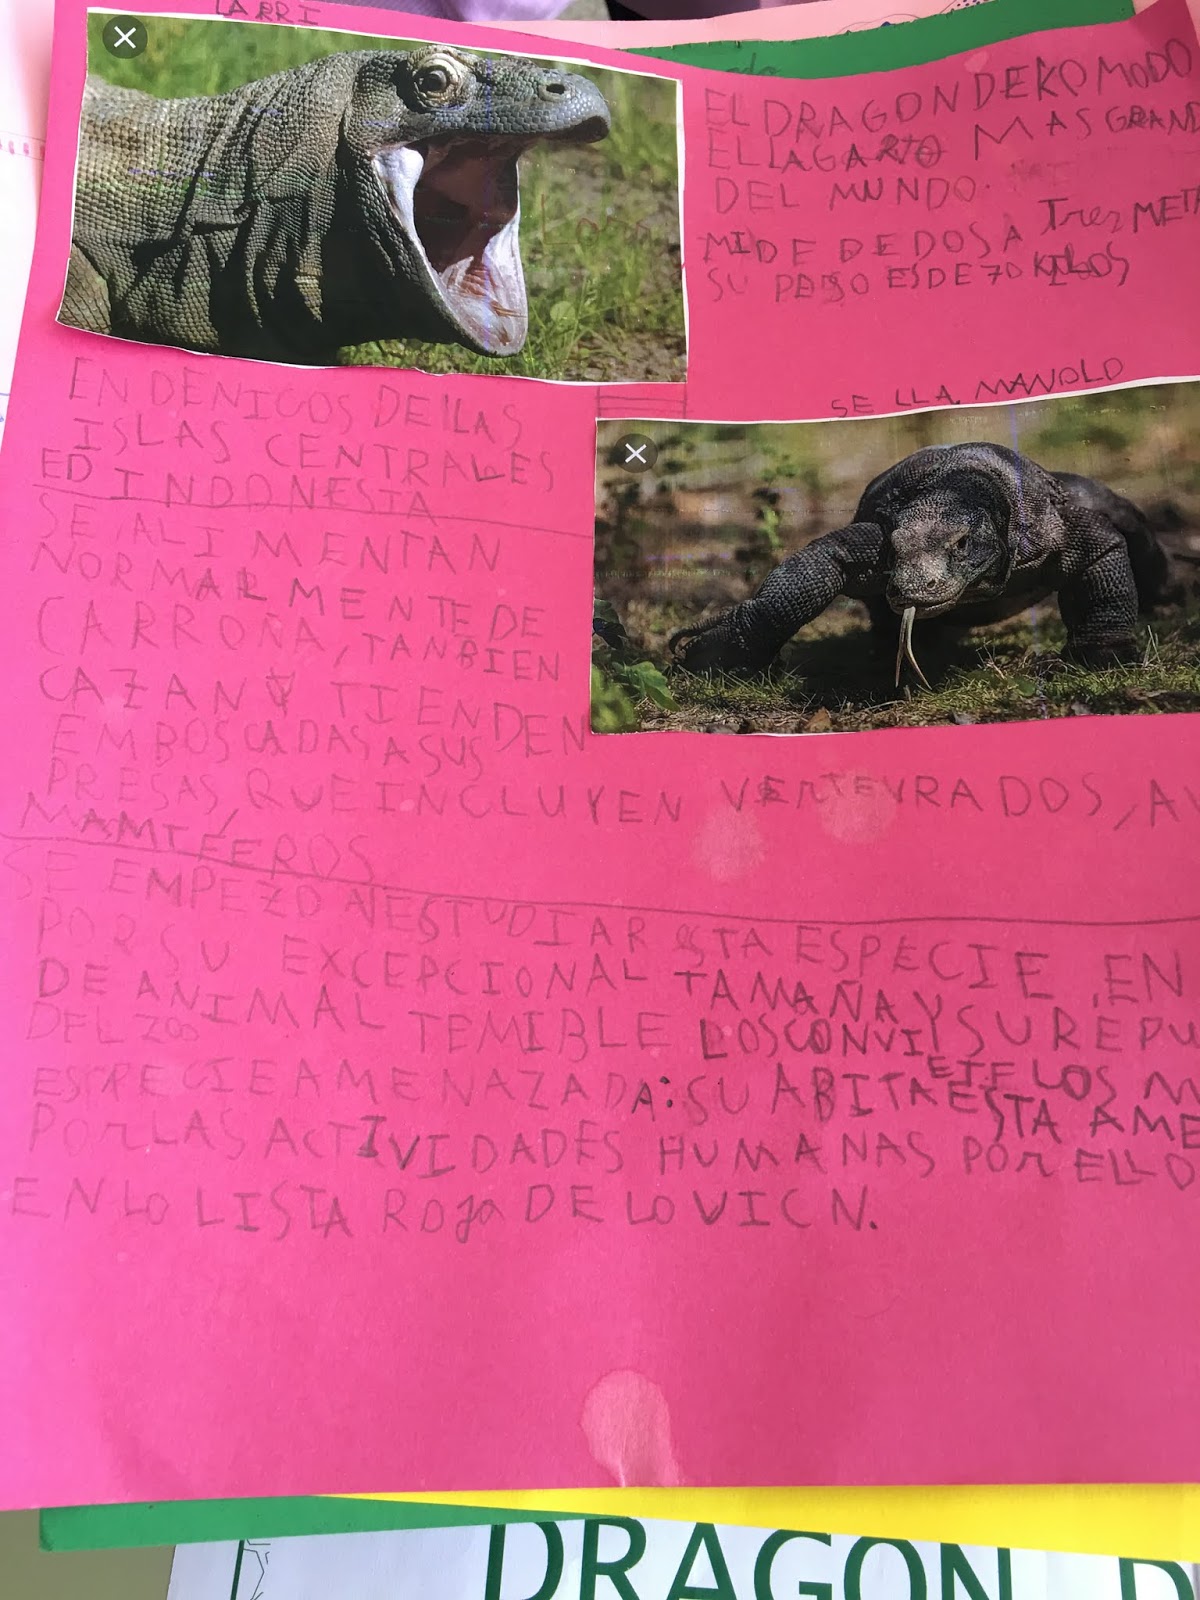 LARRI
EL DRAGON DE KOMODO
EL LAGARTO MAS GRAN
DEL MUNDO.
MIDE DE DOS A Tres MET
SU PESO ES DE 70 KILOS
SE LLA MANOLO
ENDENICOS DE LLAS
ISLAS CENTRALES
ED INDONESIA
SE ALIMENTAN
NORMALMENTE DE
CARROÑA, TANBIEN
CAZAN Y TIENDEN
EMBOSCADAS A SUS
PRESAS, QUE INCLUYEN VERTEVRADOS, AV
MAMIFEROS
SE EMPEZO A ESTUDIAR ESTA ESPECIE EN
POR SU EXCEPCIONAL TAMAÑA Y SU REPU
DE ANIMAL TEMIBLE LOS CONVIETE LOS M
DEL ZOO
ESPECIE AMENAZADA: SU ABITA ESTA AME
POR LAS ACTIVIDADES HUMANAS POR ELLO
EN LO LISTA ROJA DE LO VICN.
DRAGON D